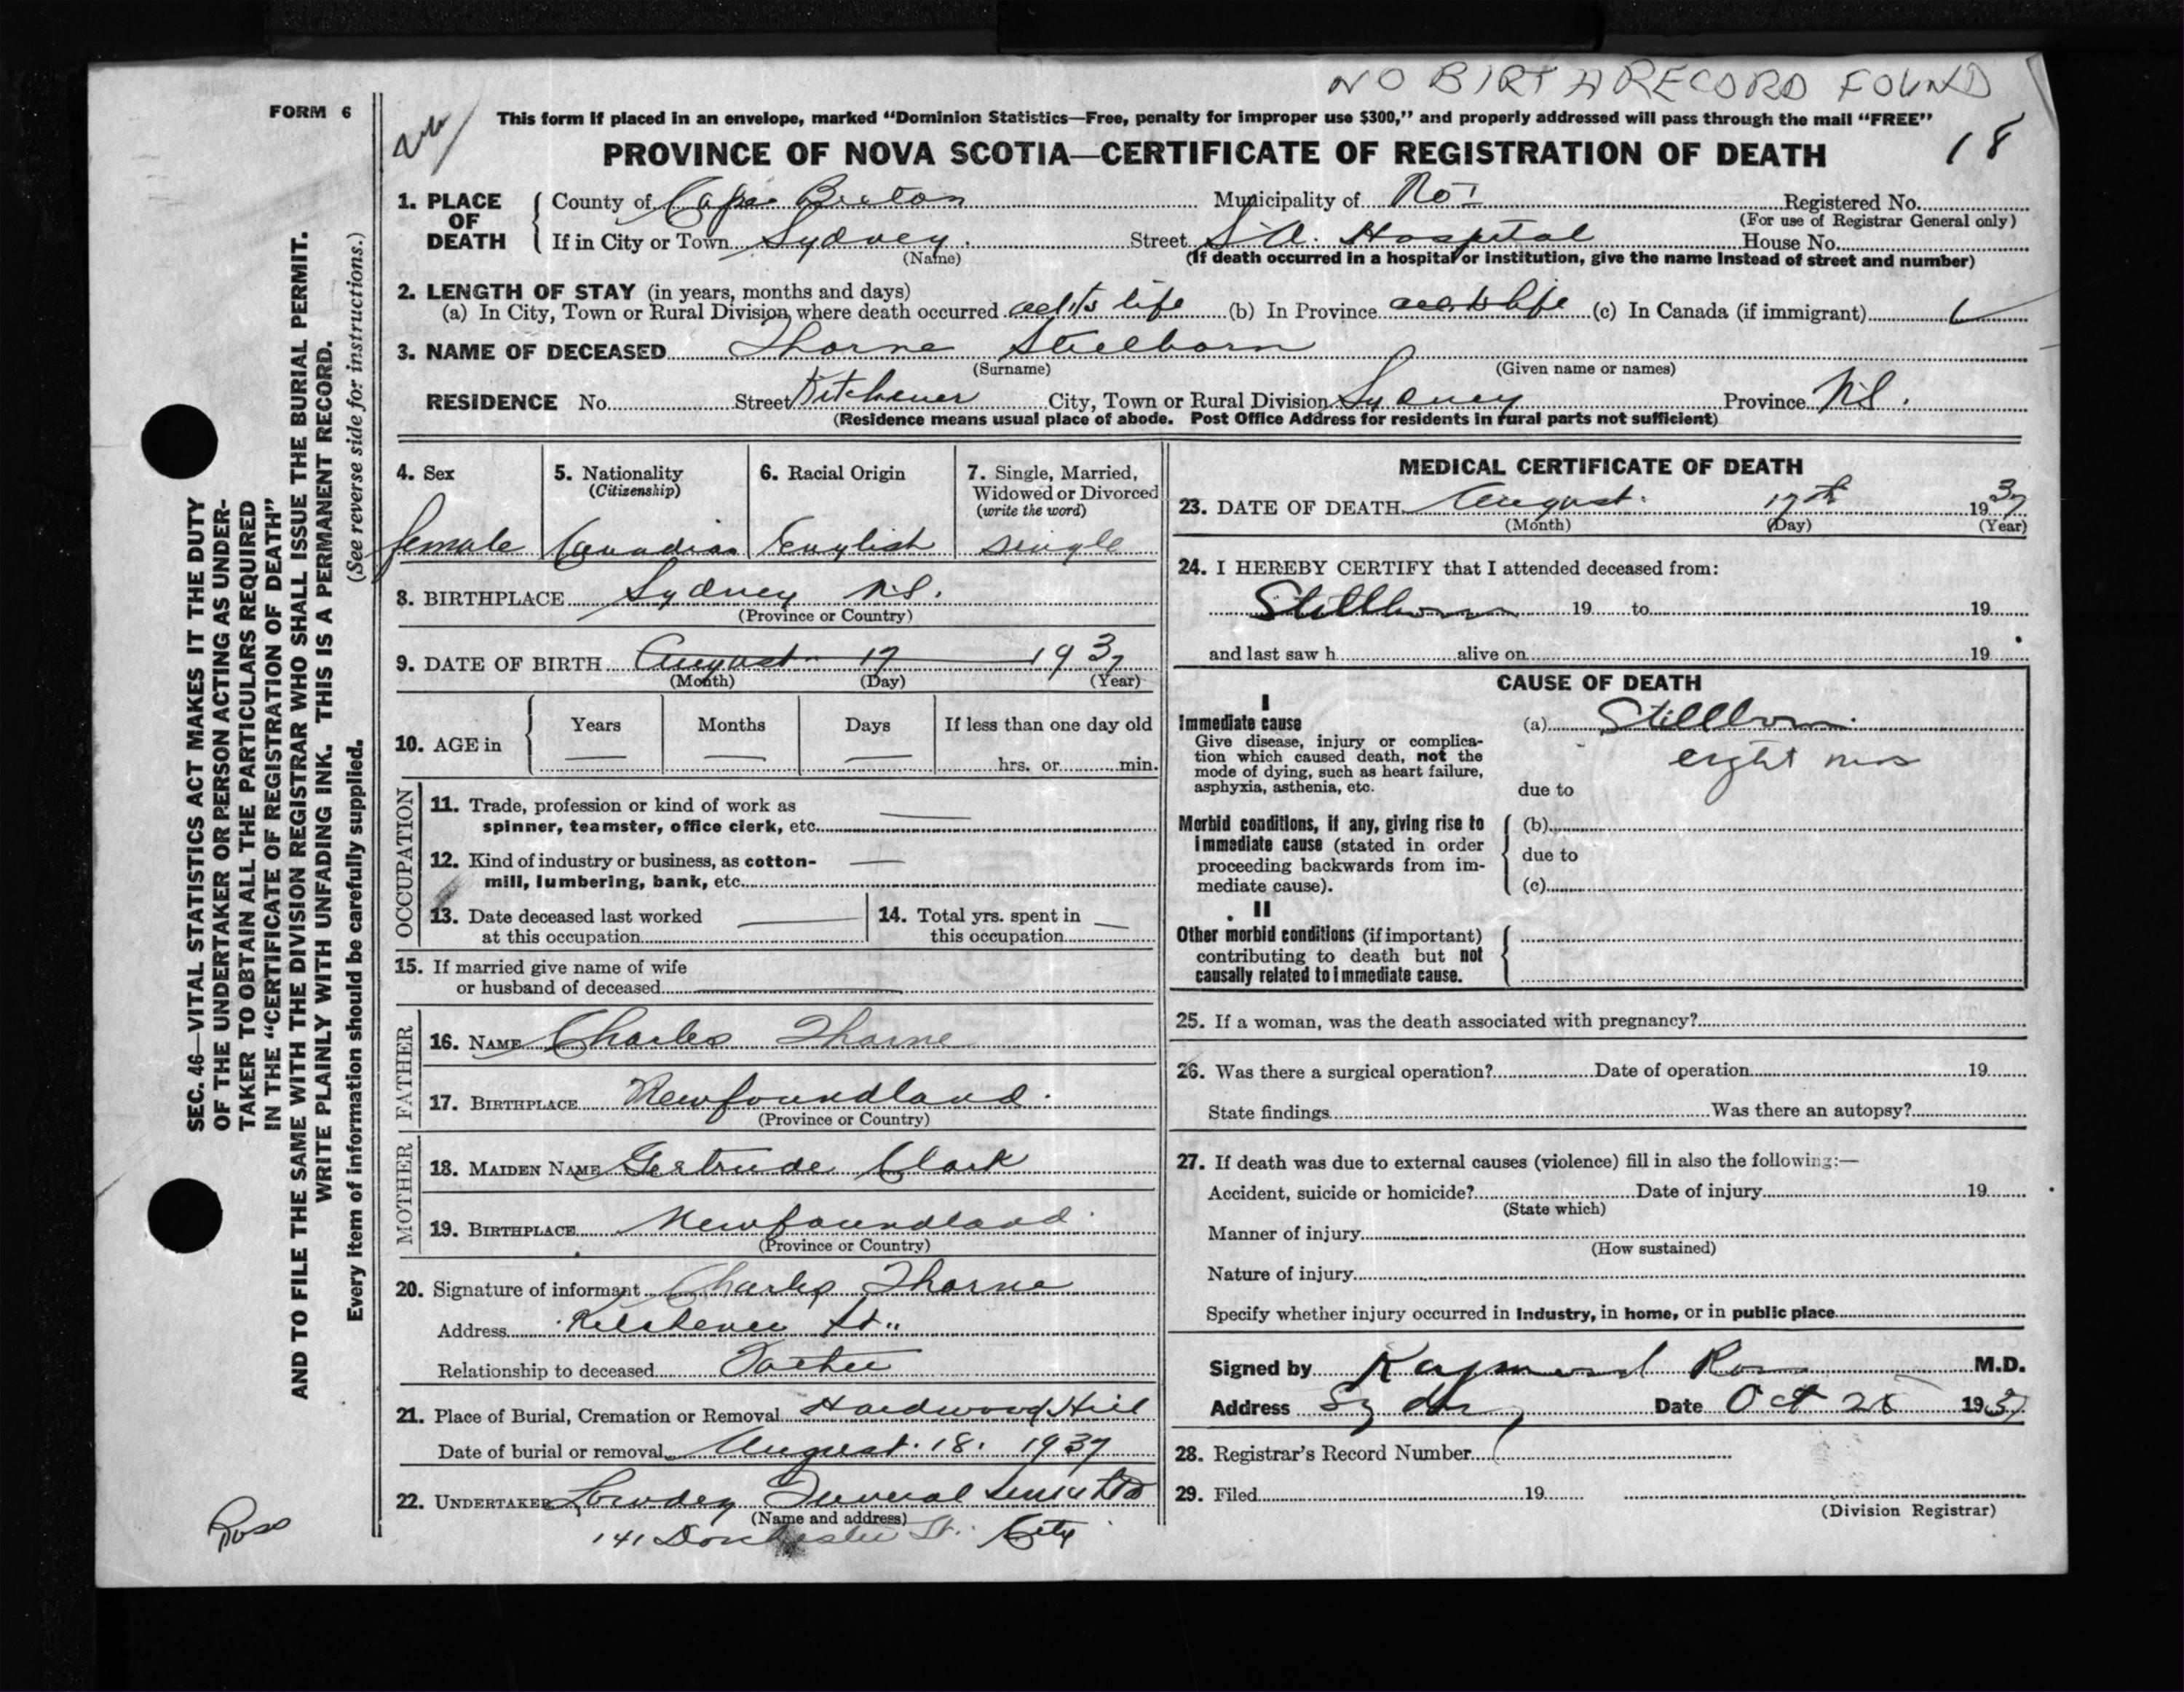 NO BIRTH RECORD FOUND
FORM 6
This form if placed in an envelope, marked “Dominion Statistics—Free, penalty for improper use $300,” and properly addressed will pass through the mail “FREE”
PROVINCE OF NOVA SCOTIA—CERTIFICATE OF REGISTRATION OF DEATH
18
1. PLACE OF DEATH
County of Cape Breton Municipality of No 1 Registered No.
(For use of Registrar General only)
If in City or Town Sydney. Street S.A. Hospital House No.
(Name) (If death occurred in a hospital or institution, give the name instead of street and number)
2. LENGTH OF STAY (in years, months and days)
(a) In City, Town or Rural Division where death occurred all its life (b) In Province all its life (c) In Canada (if immigrant)
3. NAME OF DECEASED Thorne Stillborn
(Surname) (Given name or names)
RESIDENCE No. Street Kitchener City, Town or Rural Division Sydney Province N.S.
(Residence means usual place of abode. Post Office Address for residents in rural parts not sufficient)
4. Sex
female
5. Nationality
(Citizenship)
Canadian
6. Racial Origin
English
7. Single, Married, Widowed or Divorced
(write the word)
single
8. BIRTHPLACE Sydney N.S.
(Province or Country)
9. DATE OF BIRTH August 17 1937
(Month) (Day) (Year)
10. AGE in Years Months Days If less than one day old
— — — hrs. or min.
OCCUPATION
11. Trade, profession or kind of work as
spinner, teamster, office clerk, etc. —
12. Kind of industry or business, as cotton-
mill, lumbering, bank, etc. —
13. Date deceased last worked
at this occupation —
14. Total yrs. spent in
this occupation —
15. If married give name of wife
or husband of deceased
FATHER
16. NAME Charles Thorne
17. BIRTHPLACE Newfoundland.
(Province or Country)
MOTHER
18. MAIDEN NAME Gertrude Clark
19. BIRTHPLACE Newfoundland.
(Province or Country)
20. Signature of informant Charles Thorne
Address Kitchener St.
Relationship to deceased Father
21. Place of Burial, Cremation or Removal Hardwood Hill
Date of burial or removal August. 18. 1937
22. UNDERTAKER Lowden Funeral Service Ltd
(Name and address)
141 Dorchester St. City
MEDICAL CERTIFICATE OF DEATH
23. DATE OF DEATH August 17th 1937
(Month) (Day) (Year)
24. I HEREBY CERTIFY that I attended deceased from:
Stillborn 19 to 19
and last saw h alive on 19
CAUSE OF DEATH
I
Immediate cause
Give disease, injury or complica-
tion which caused death, not the
mode of dying, such as heart failure,
asphyxia, asthenia, etc.
(a) Stillborn.
eight mos
due to
Morbid conditions, if any, giving rise to
immediate cause (stated in order
proceeding backwards from im-
mediate cause).
(b)
due to
(c)
II
Other morbid conditions (if important)
contributing to death but not
causally related to immediate cause.
25. If a woman, was the death associated with pregnancy?
26. Was there a surgical operation? Date of operation 19
State findings Was there an autopsy?
27. If death was due to external causes (violence) fill in also the following:—
Accident, suicide or homicide? Date of injury 19
(State which)
Manner of injury
(How sustained)
Nature of injury
Specify whether injury occurred in Industry, in home, or in public place
Signed by Raymond Ross M.D.
Address Sydney Date Oct 1937
28. Registrar's Record Number
29. Filed 19
(Division Registrar)
SEC. 46—VITAL STATISTICS ACT MAKES IT THE DUTY
OF THE UNDERTAKER OR PERSON ACTING AS UNDER-
TAKER TO OBTAIN ALL THE PARTICULARS REQUIRED
IN THE “CERTIFICATE OF REGISTRATION OF DEATH”
AND TO FILE THE SAME WITH THE DIVISION REGISTRAR WHO SHALL ISSUE THE BURIAL PERMIT.
WRITE PLAINLY WITH UNFADING INK. THIS IS A PERMANENT RECORD.
Every item of information should be carefully supplied. (See reverse side for instructions.)
Ross